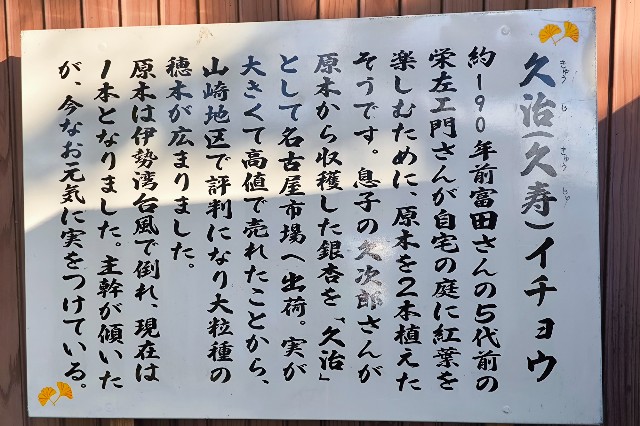 久治(久寿)イチョウ
きゅうじ きゅうじゅ
約190年前富田さんの5代前の
栄左エ門さんが自宅の庭に紅葉を
楽しむために、原木を2本植えた
そうです。息子の久次郎さんが
原木から収穫した銀杏を、「久治」
として名古屋市場へ出荷。実が
大きくて高値で売れたことから、
山崎地区で評判になり大粒種の
穂木が広まりました。
原木は伊勢湾台風で倒れ、現在は
1本となりました。主幹が傾いた
が、今なお元気に実をつけている。